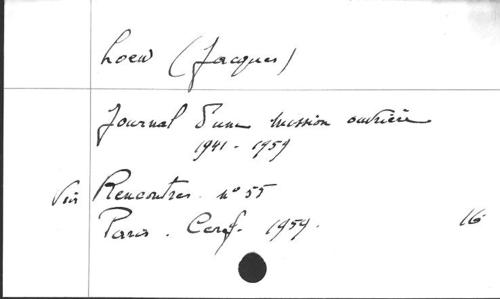 Loew (Jacques)
Journal d'une mission ouvrière
1941 - 1959
Voir Rencontres. n° 55
Paris. Cerf. 1959. 16